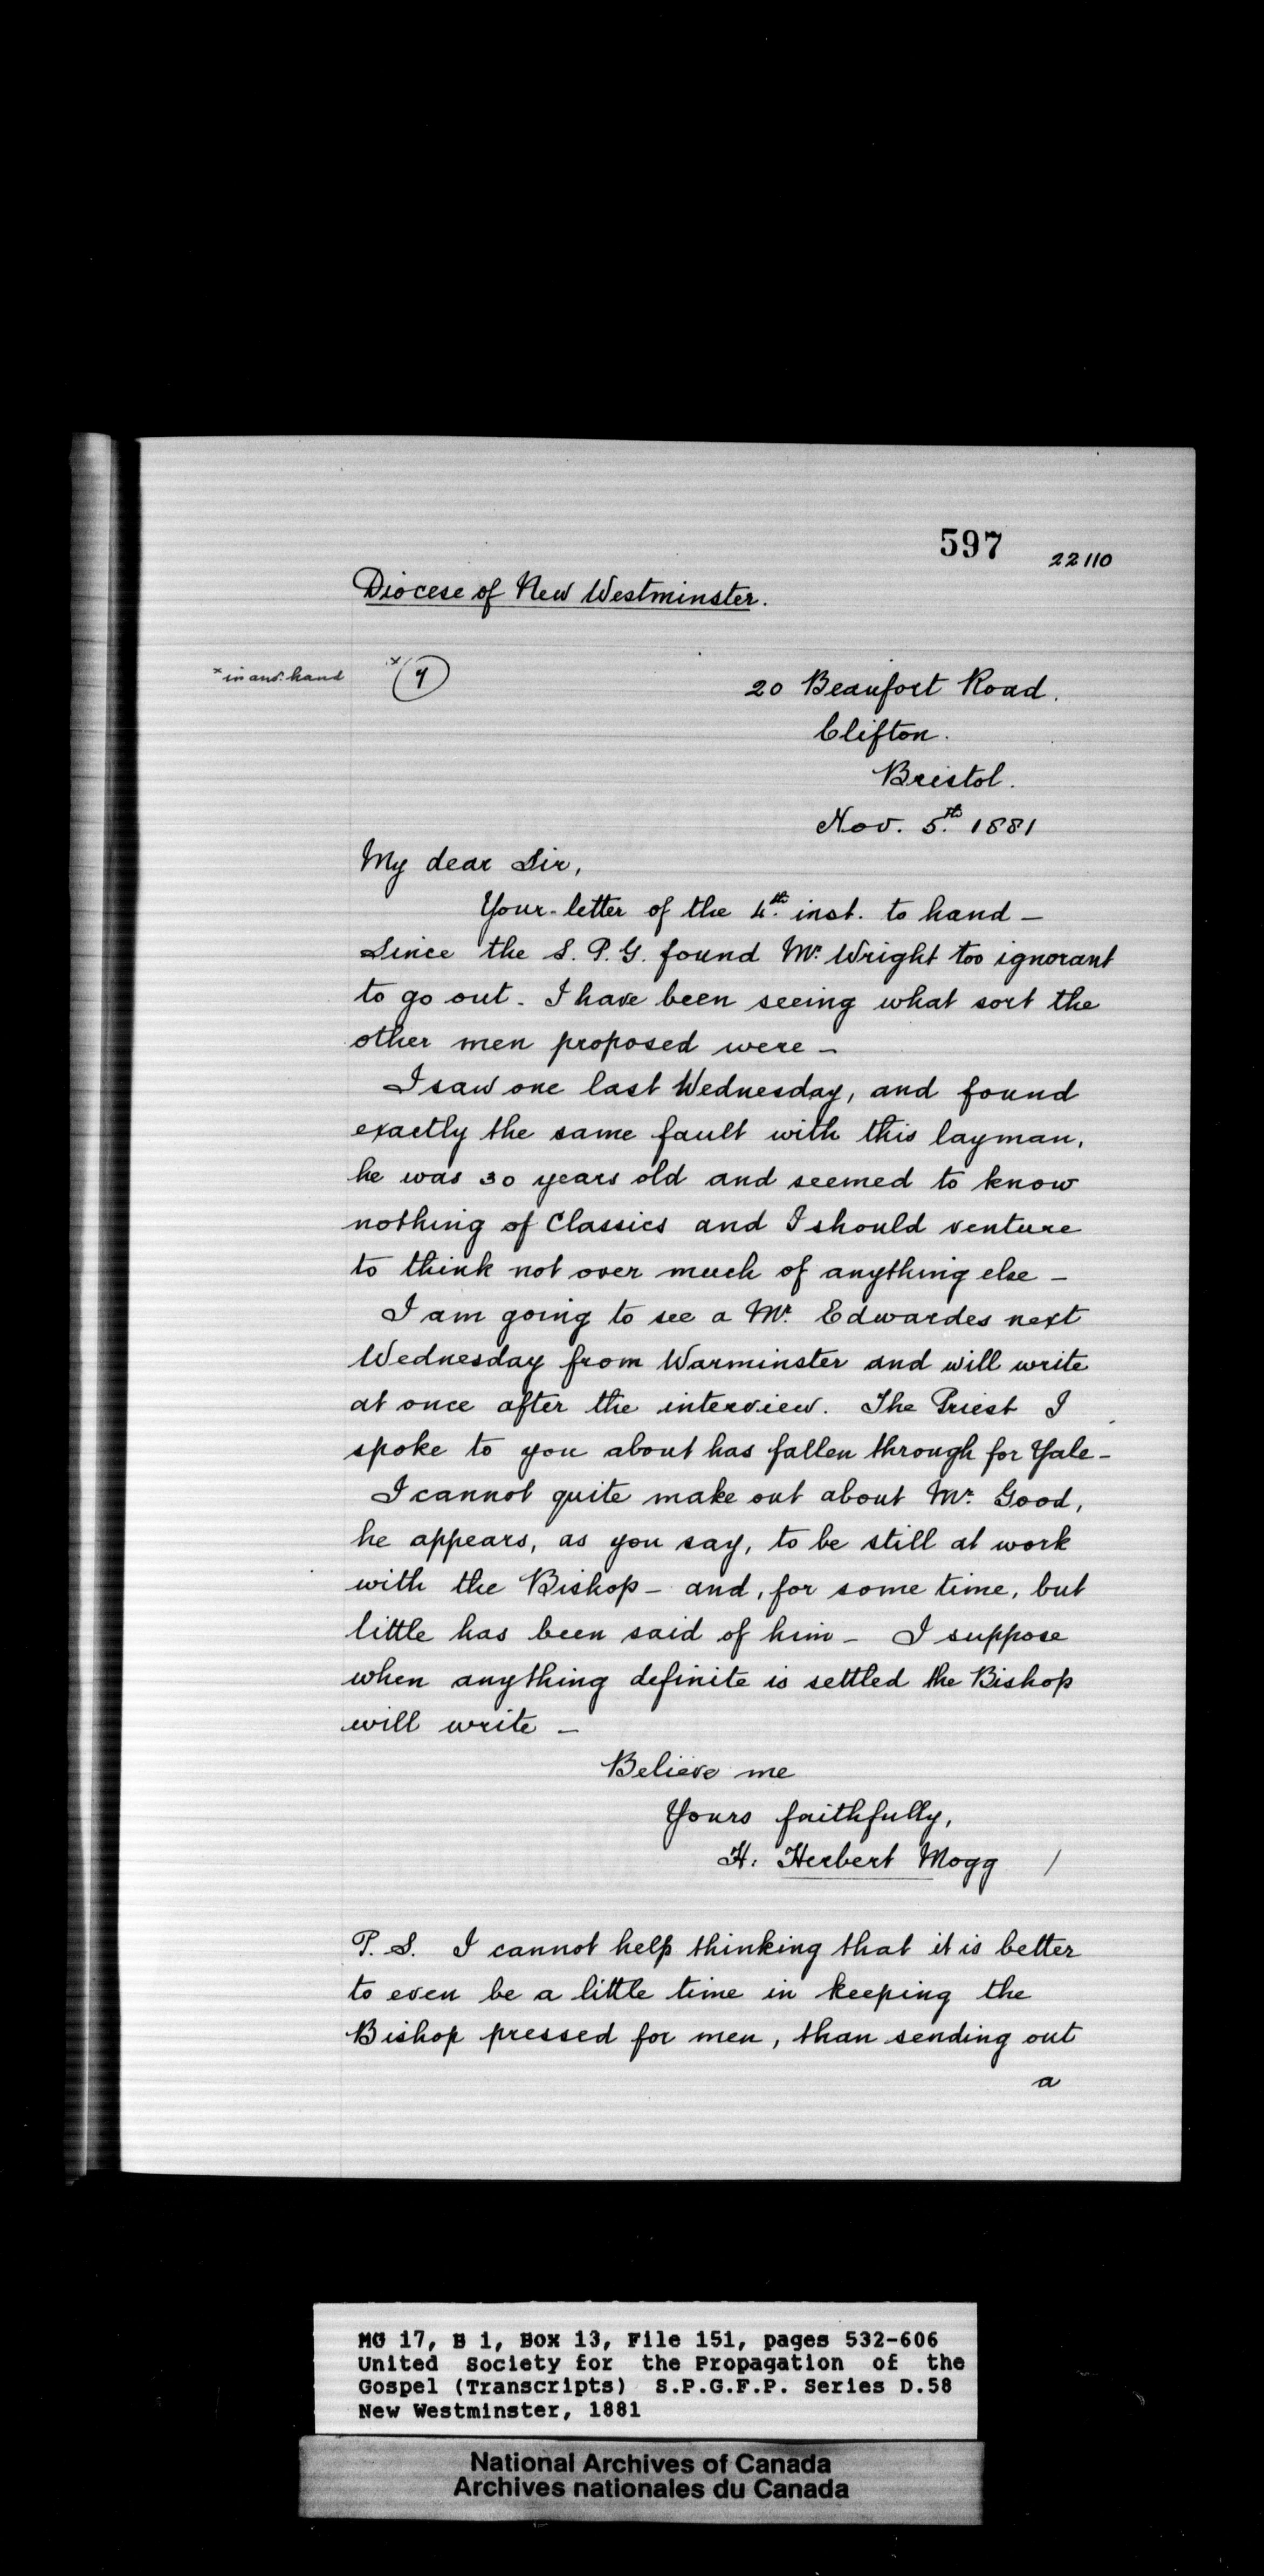 597
22110
Diocese of New Westminster.
x in anr. hand
x
20 Beaufort Road.
Clifton.
Bristol.
Nov. 5th. 1881
My dear Sir,
Your letter of the 4th. inst. to hand —
Since the S. P. G. found Mr. Wright too ignorant
to go out. I have been seeing what sort the
other men proposed were —
I saw one last Wednesday, and found
exactly the same fault with this layman,
he was 30 years old and seemed to know
nothing of Classics and I should venture
to think not over much of anything else —
I am going to see a Mr. Edwardes next
Wednesday from Warminster and will write
at once after the interview. The Priest I
spoke to you about has fallen through for Yale —
I cannot quite make out about Mr. Good,
he appears, as you say, to be still at work
with the Bishop — and, for some time, but
little has been said of him — I suppose
when anything definite is settled the Bishop
will write —
Believe me
Yours faithfully,
H. Herbert Mogg /
P. S. I cannot help thinking that it is better
to even be a little time in keeping the
Bishop pressed for men, than sending out
a
MG 17, B 1, Box 13, File 151, pages 532-606
United Society for the Propagation of the
Gospel (Transcripts) S.P.G.F.P. Series D.58
New Westminster, 1881
National Archives of Canada
Archives nationales du Canada